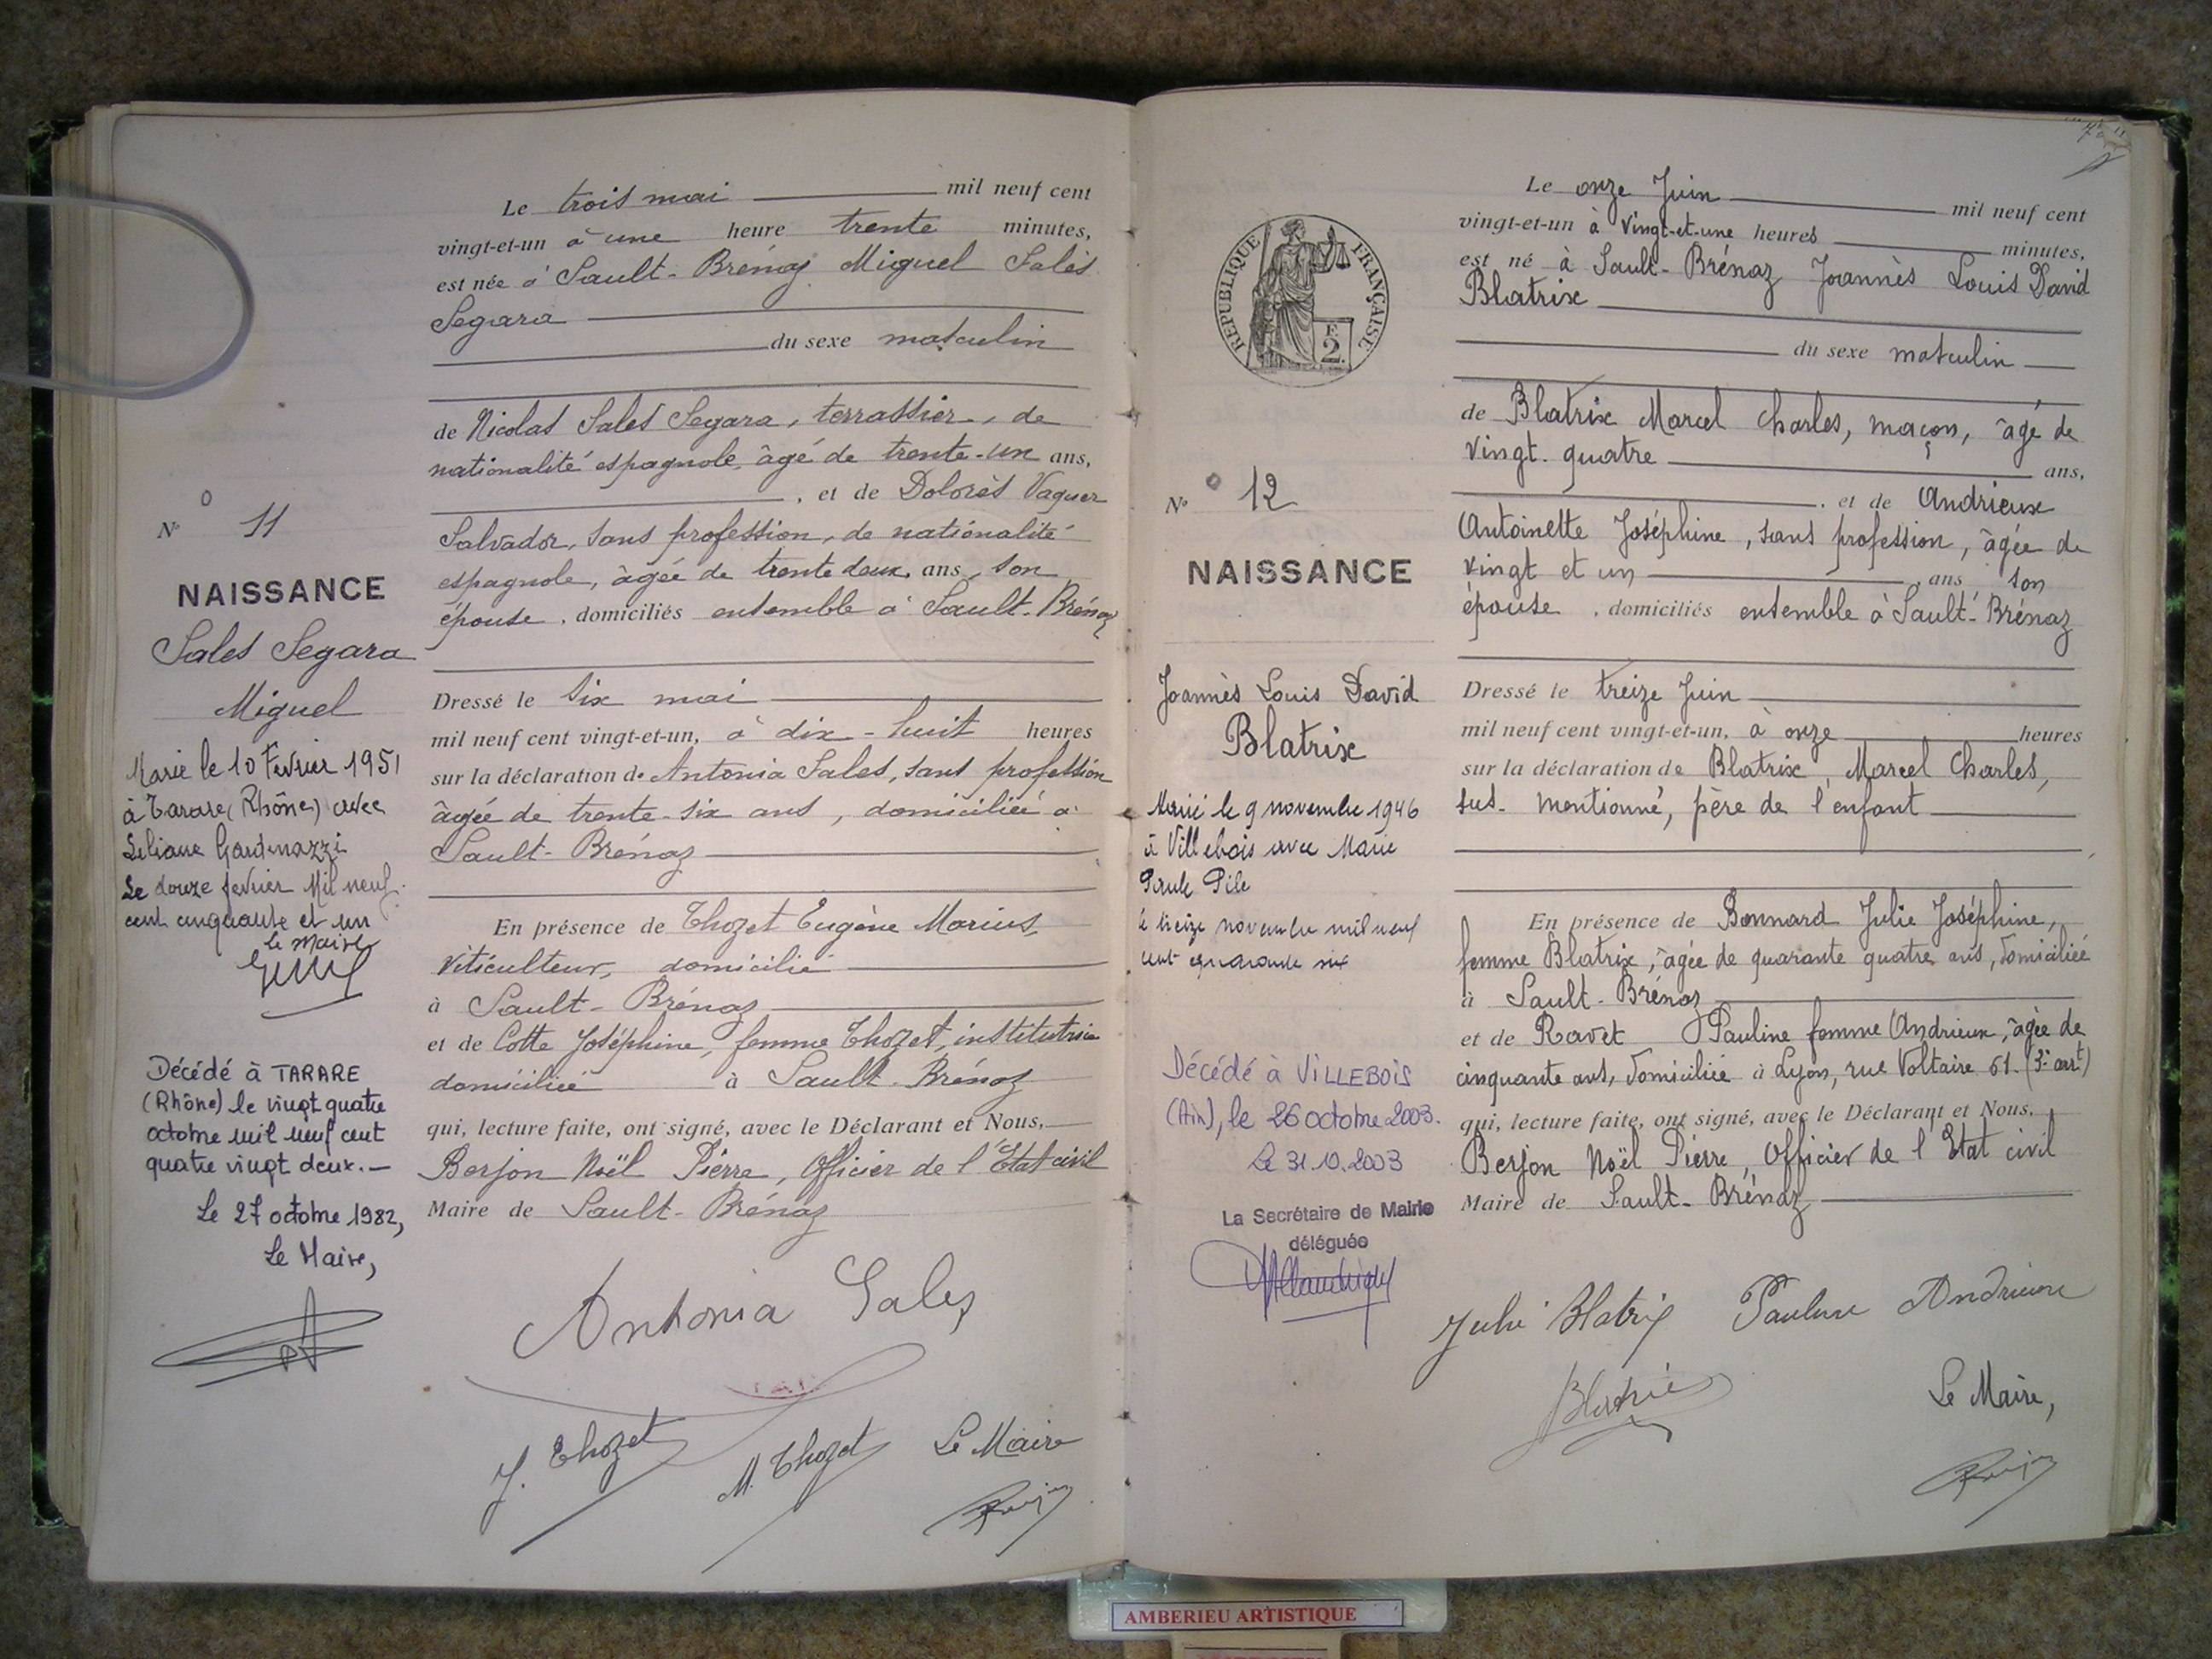 Le trois mai mil neuf cent
vingt-et-un à une heure trente minutes,
est née à Sault-Brénaz Miguel Salès
Segara
du sexe masculin
de Nicolas Salès Segara, terrassier, de
nationalité espagnole, âgé de trente-un ans,
, et de Dolorès Vaquer
Salvador, sans profession, de nationalité
espagnole, âgée de trente deux ans, son
épouse, domiciliés ensemble à Sault-Brénaz
N° 11
NAISSANCE
Sales Segara
Miguel
Marié le 10 Fevrier 1951
à Tarare (Rhône) avec
Liliane
Le douze fevrier Mil neuf
cent cinquante et un
Le Maire
Décédé à TARARE
(Rhône) le vingt quatre
octobre mil neuf cent
quatre vingt deux.-
Le 27 octobre 1982,
Le Maire,
Dressé le six mai
mil neuf cent vingt-et-un, à dix-huit heures
sur la déclaration de Antonia Sales, sans profession
âgée de trente-six ans, domiciliée à
Sault-Brénaz
En présence de Thozet Eugène Marius,
viticulteur, domicilié
à Sault-Brénaz
et de Cotte Joséphine, femme Thozet, institutrice
domiciliée à Sault-Brénaz
qui, lecture faite, ont signé, avec le Déclarant et Nous,
Berjon Noël Pierre, Officier de l'Etat civil
Maire de Sault-Brénaz
Antonia Sales
J. Thozet
M. Thozet
Le Maire
Le onze Juin mil neuf cent
vingt-et-un à vingt-et-une heures minutes,
est né à Sault-Brénaz Joannès Louis David
Blatrix
du sexe masculin
de Blatrix Marcel Charles, maçon, âgé de
vingt-quatre ans,
, et de Andrieux
Antoinette Joséphine, sans profession, âgée de
vingt et un ans son
épouse, domiciliés ensemble à Sault-Brénaz
REPUBLIQUE FRANÇAISE
F.
2.
N° 12
NAISSANCE
Joannès Louis David
Blatrix
Marié le 9 novembre 1946
à Villebois avec Marie
Pile
le treize novembre mil neuf
cent quarante six
Décédé à VILLEBOIS
(Ain), le 26 octobre 2003.
Le 31.10.2003
La Secrétaire de Mairie
déléguée
Dressé le treize Juin
mil neuf cent vingt-et-un, à onze heures
sur la déclaration de Blatrix, Marcel Charles,
sus-mentionné, père de l'enfant
En présence de Bonnard Julie Joséphine,
femme Blatrix, âgée de quarante quatre ans, domiciliée
à Sault-Brénaz
et de Ravet Pauline femme Andrieux, âgée de
cinquante ans, domiciliée à Lyon, rue Voltaire 61 (3e art)
qui, lecture faite, ont signé, avec le Déclarant et Nous,
Berjon Noël Pierre, Officier de l'Etat civil
Maire de Sault-Brénaz
Julie Blatrix Pauline Andrieux
Blatrix
Le Maire,
AMBERIEU ARTISTIQUE